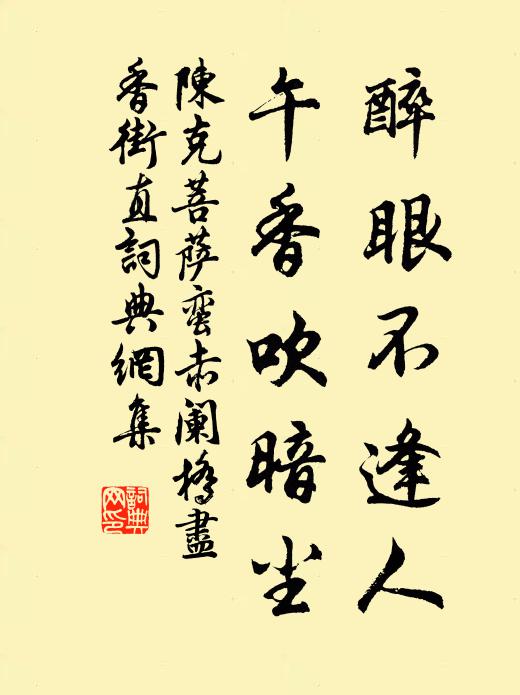 醉眼不逢人
午香吹暗尘
陳克菩萨蛮赤阑橋盡
香街直詞典網集
詞典网印